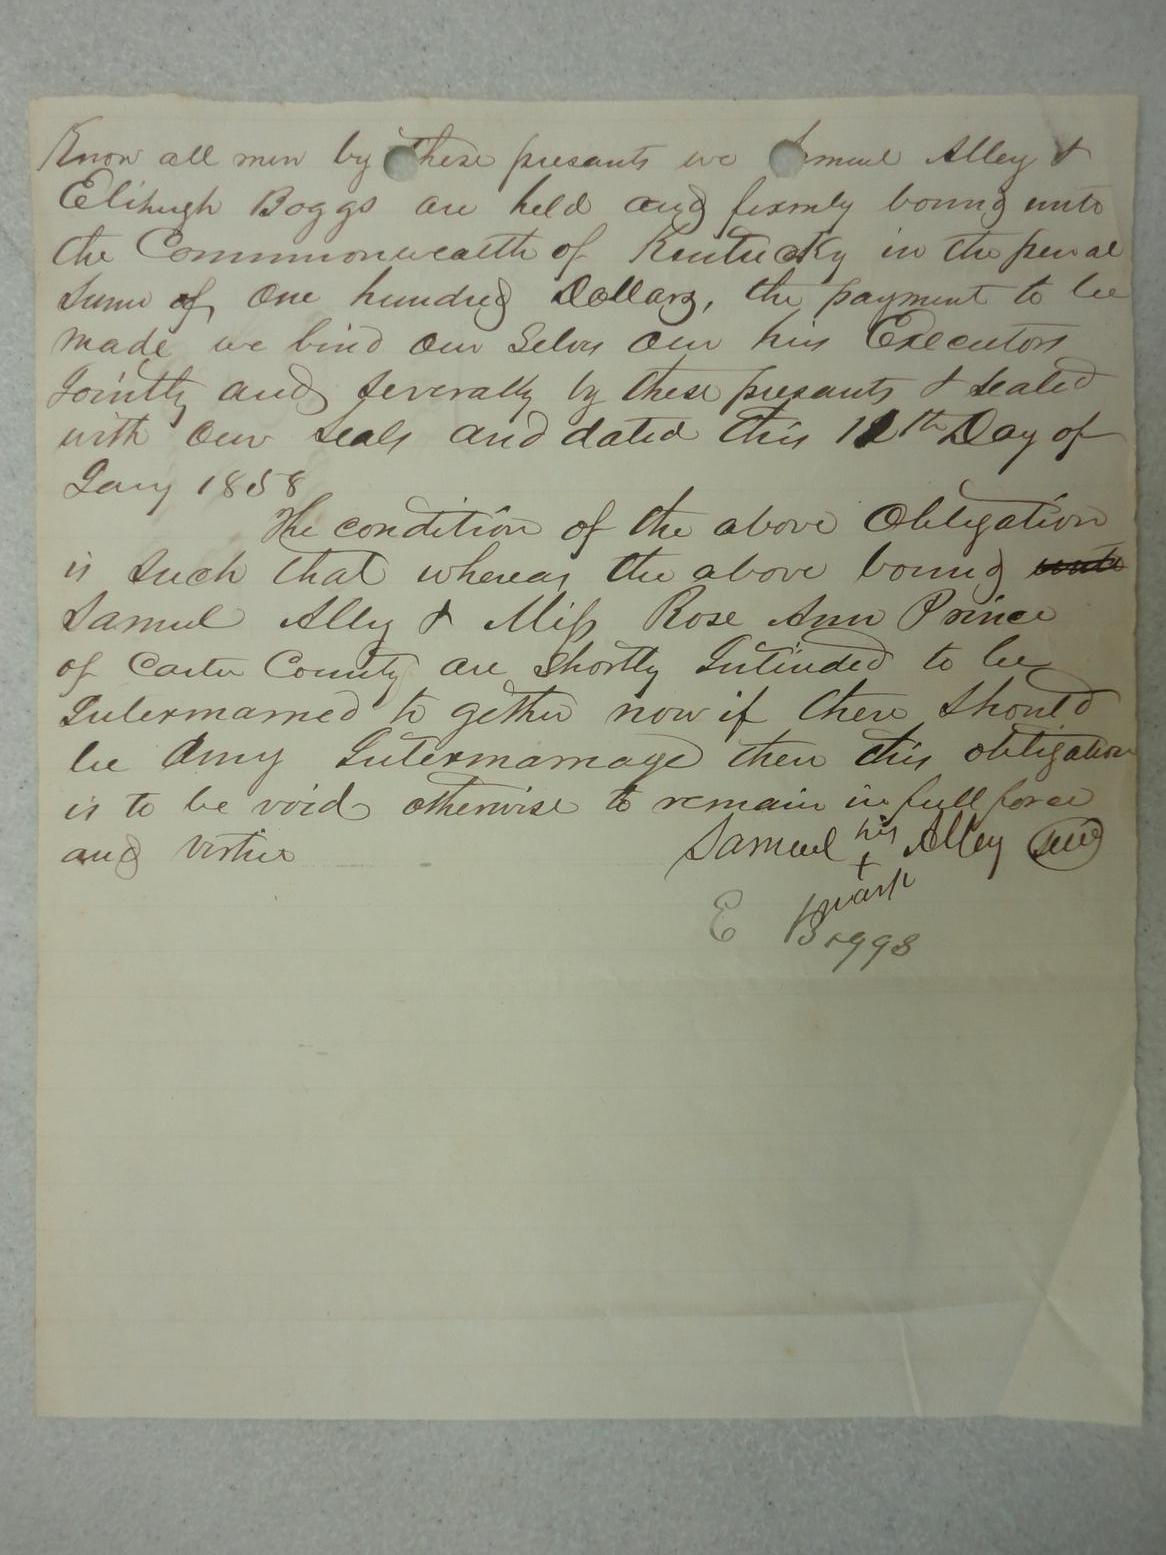 Know all men by these presants we Samuel Alley &
Elihugh Boggs are held and firmly bound unto
the Commonwealth of Kentucky in the penal
Sum of One hundred Dollars, the payment to be
made we bind our Selvs our hirs Executors
Jointly and severally by these presants & sealed
with our seals and dated this 12th Day of
Jany 1858
The condition of the above Obligation
is such that whereas the above bound unto
Samuel Alley & Miss Rose Ann Prince
of Carter County are Shortly Intinded to be
Intermarried to gether now if there should
be any Intermarriage then this obligation
is to be void otherwise to remain in full force
and virtue
Samuel his Alley Seal
+
mark
E Boggs